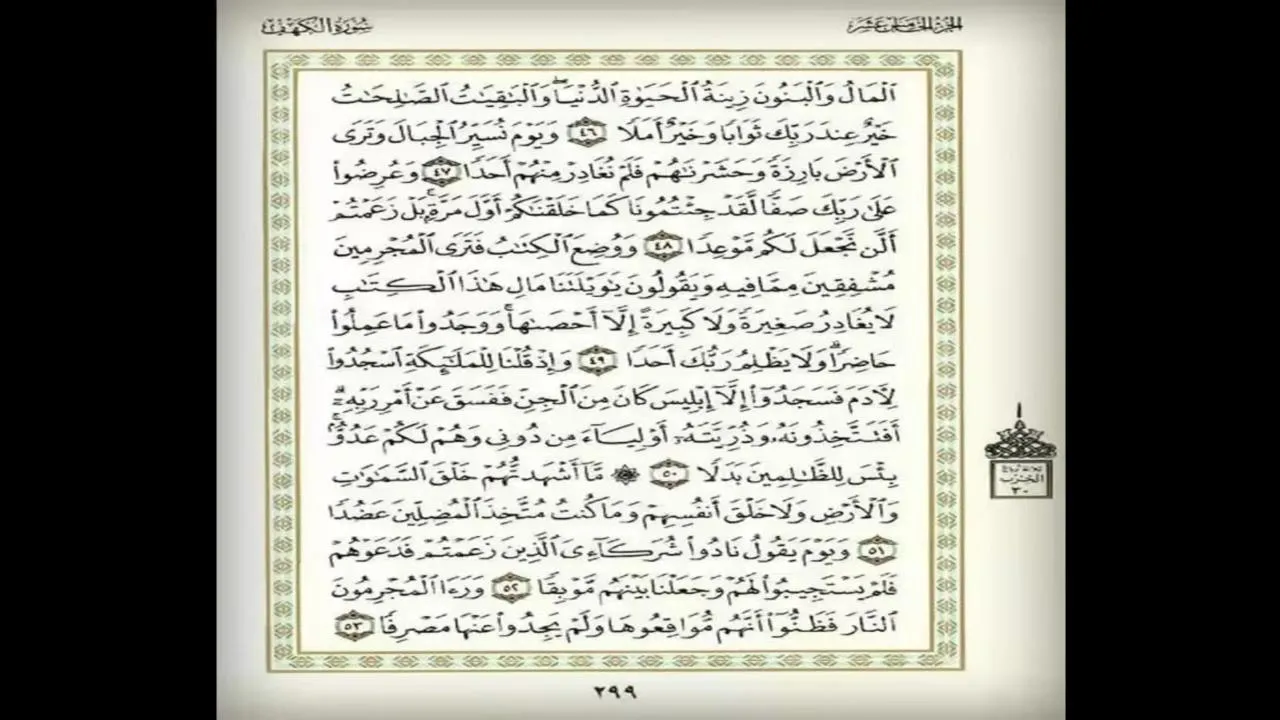 سُورَةُ الكَهْفِ
الجزء الخامس عشر
الْمَالُ وَالْبَنُونَ زِينَةُ الْحَيَوٰةِ الدُّنْيَا ۖ وَالْبَٰقِيَٰتُ الصَّٰلِحَٰتُ
خَيْرٌ عِندَ رَبِّكَ ثَوَابًا وَخَيْرٌ أَمَلًا ٤٦ وَيَوْمَ نُسَيِّرُ الْجِبَالَ وَتَرَى
الْأَرْضَ بَارِزَةً وَحَشَرْنَٰهُمْ فَلَمْ نُغَادِرْ مِنْهُمْ أَحَدًا ٤٧ وَعُرِضُوا۟
عَلَىٰ رَبِّكَ صَفًّا لَّقَدْ جِئْتُمُونَا كَمَا خَلَقْنَٰكُمْ أَوَّلَ مَرَّةٍۭ ۚ بَلْ زَعَمْتُمْ
أَلَّن نَّجْعَلَ لَكُم مَّوْعِدًا ٤٨ وَوُضِعَ الْكِتَٰبُ فَتَرَى الْمُجْرِمِينَ
مُشْفِقِينَ مِمَّا فِيهِ وَيَقُولُونَ يَٰوَيْلَتَنَا مَالِ هَٰذَا الْكِتَٰبِ
لَا يُغَادِرُ صَغِيرَةً وَلَا كَبِيرَةً إِلَّآ أَحْصَىٰهَا ۚ وَوَجَدُوا۟ مَا عَمِلُوا۟
حَاضِرًا ۗ وَلَا يَظْلِمُ رَبُّكَ أَحَدًا ٤٩ وَإِذْ قُلْنَا لِلْمَلَٰٓئِكَةِ اسْجُدُوا۟
لِـَٔادَمَ فَسَجَدُوٓا۟ إِلَّآ إِبْلِيسَ كَانَ مِنَ الْجِنِّ فَفَسَقَ عَنْ أَمْرِ رَبِّهِۦٓ ۗ
أَفَتَتَّخِذُونَهُۥ وَذُرِّيَّتَهُۥٓ أَوْلِيَآءَ مِن دُونِى وَهُمْ لَكُمْ عَدُوٌّۢ ۚ
بِئْسَ لِلظَّٰلِمِينَ بَدَلًا ٥٠ ۞ مَّآ أَشْهَدتُّهُمْ خَلْقَ السَّمَٰوَٰتِ
وَالْأَرْضِ وَلَا خَلْقَ أَنفُسِهِمْ وَمَا كُنتُ مُتَّخِذَ الْمُضِلِّينَ عَضُدًا
٥١ وَيَوْمَ يَقُولُ نَادُوا۟ شُرَكَآءِىَ الَّذِينَ زَعَمْتُمْ فَدَعَوْهُمْ
فَلَمْ يَسْتَجِيبُوا۟ لَهُمْ وَجَعَلْنَا بَيْنَهُم مَّوْبِقًا ٥٢ وَرَءَا الْمُجْرِمُونَ
النَّارَ فَظَنُّوٓا۟ أَنَّهُم مُّوَاقِعُوهَا وَلَمْ يَجِدُوا۟ عَنْهَا مَصْرِفًا ٥٣
ثلاثة أرباع
الحزب
٣٠
٢٩٩